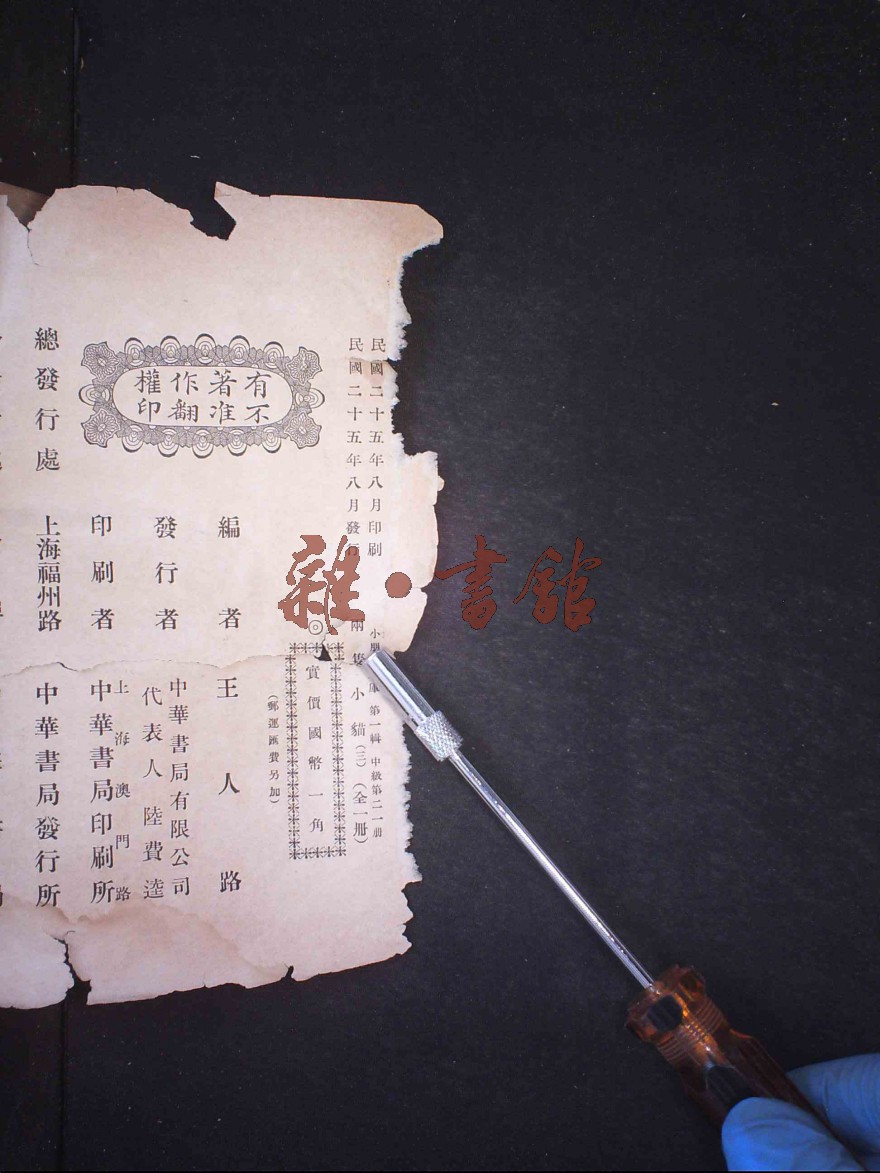 民國二十五年八月印刷
民國二十五年八月發行
小
第一輯 中級第二一册
兩隻小貓(三)(全一册)
◎實價國幣一角
(郵運匯費另加)
有著作權
不准翻印
編者 王人路
發行者 中華書局有限公司
代表人 陸費逵
印刷者 上海澳門路
中華書局印刷所
總發行處 上海福州路 中華書局發行所
雜·書館